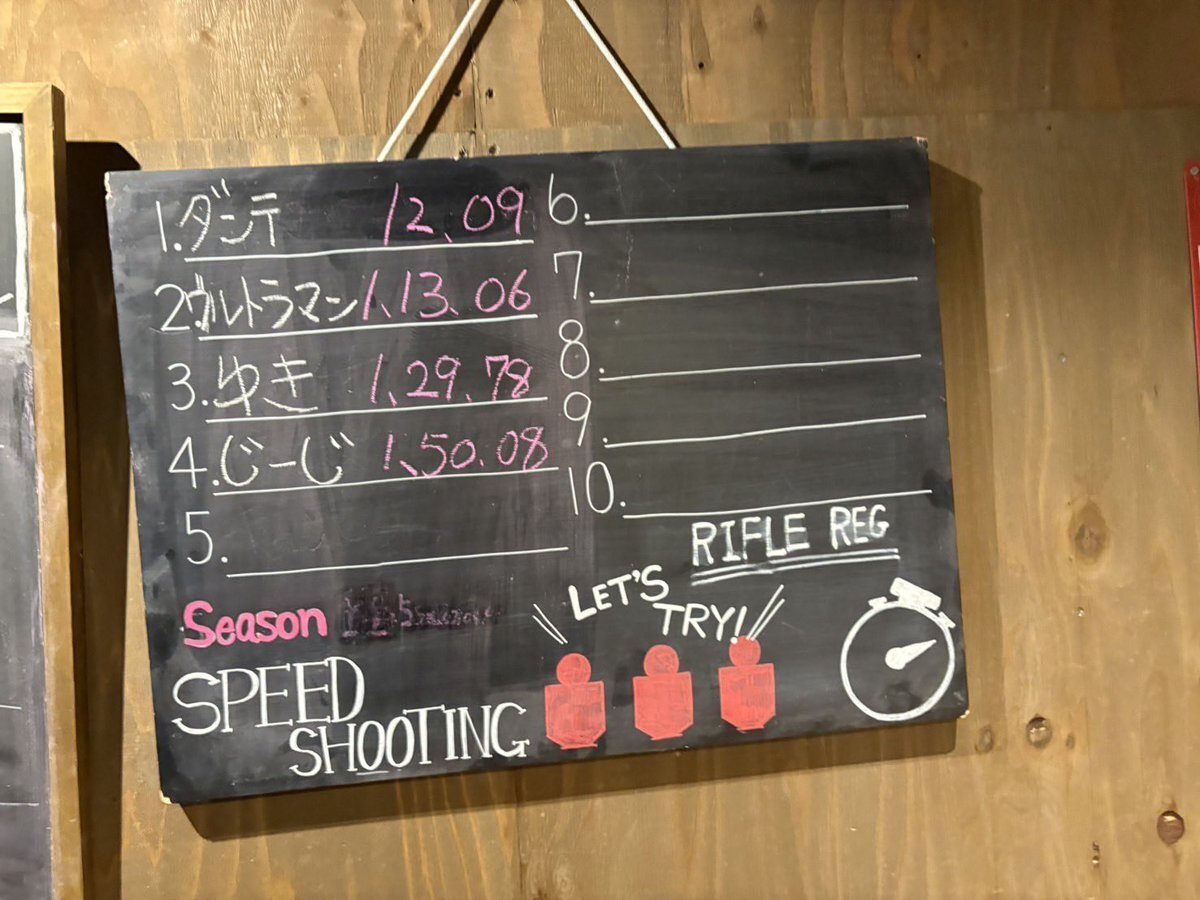 1. ダンテ 12.09
2. ウルトラマン 1.13.06
3. ゆき 1.29.78
4. じーじ 1.50.08
5.
6.
7.
8.
9.
10.
RIFLE REG
LET'S
TRY!
Season
SPEED
SHOOTING